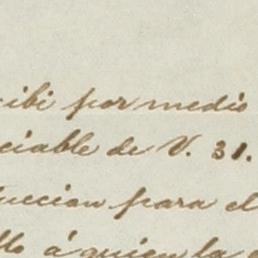 cibi por medio
ciable de V. 31.
uccion para el
llo á quien la